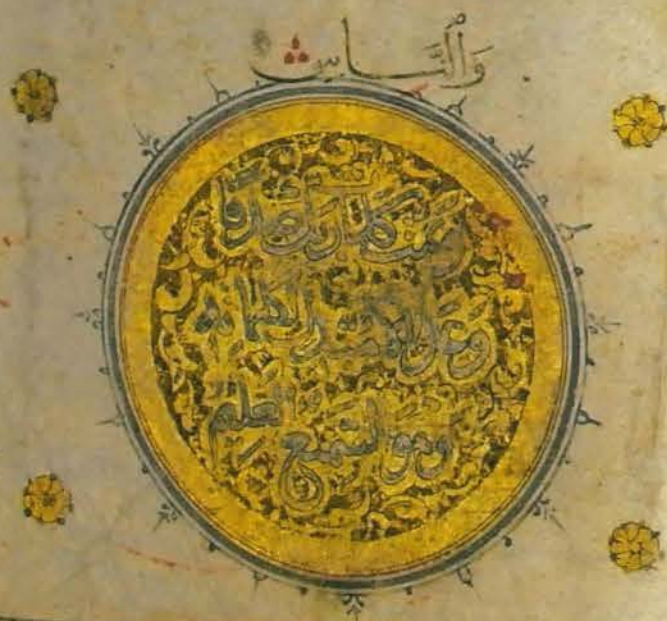 وَالنَّاسِ
وتمت كلمة ربك صدقا
وعدلا لا مبدل لكلماته
وهو السميع العليم